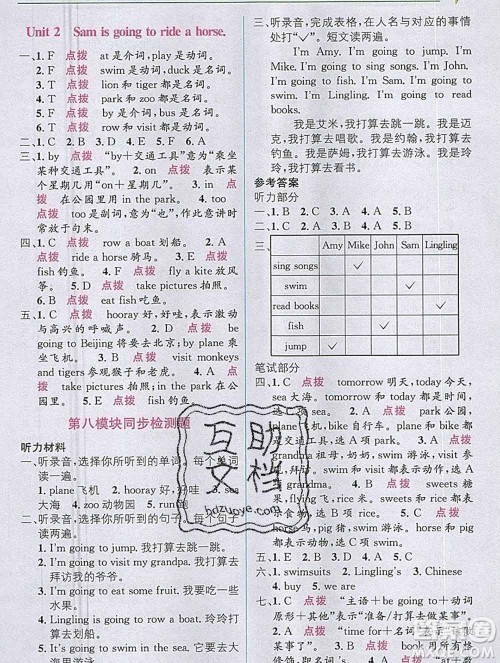 Unit 2 Sam is going to ride a horse.
一、1. F 点拨 at 是介词, play 是动词。
2. F 点拨 swim 是动词, duck 是名词。
3. T 点拨 lion 和 tiger 都是名词。
4. T 点拨 park 和 zoo 都是名词。
5. F 点拨 by 是介词, bus 是名词。
6. T 点拨 row 和 visit 都是动词。
二、1. C 2. D 3. A 4. E 5. B
三、1. by 点拨 “by+交通工具”意为“乘坐
某种交通工具”。 2. on 点拨 表示在
某个星期几用“on+星期几”。 3. in
点拨 in 在公园里用 in the park。
4. too 点拨 too 是副词, 意为“也”, 作此意讲时
常放于句末。
四、1. C 点拨 row a boat 划船。 2. A
点拨 ride a horse 骑马。 3. C 点拨
fish 钓鱼。 4. B 点拨 fly a kite 放风
筝。 5. A 点拨 take pictures 照相。
6. B 点拨 eat fish 吃鱼。
五、1. C 点拨 hooray 好哇, 好哇, 表示激动
与高兴的呼喊声。 2. D 点拨 be
going to Beijing 将要去北京; by plane 乘
坐飞机。 3. B 点拨 visit monkeys
and tigers 参观猴子和老虎。 4. E
点拨 swim 游泳。 5. A 点拨 in the park
在公园里。
第八模块同步检测题
听力材料
一、听录音, 选择你所听到的单词。每个单词
读一遍。
1. plane 飞机 2. hooray 好哇 3. sea
大海 4. zoo 动物园 5. run 跑
二、听录音, 选择你所听到的句子。每个句子
读两遍。
1. I'm going to jump. 我打算去跳一跳。
2. I'm going to visit my grandpa. 我打算去
拜访我的爷爷。
3. I'm going to eat some fruit. 我打算吃一
些水果。
4. I'm going to row a boat. 我打算去划船。
5. I'm going to swim in the sea. 我打算去大
海里游泳。
三、听录音, 完成表格, 在人名与对应的事情
处打“✓”。短文读两遍。
I'm Amy. I'm going to jump. I'm
Mike. I'm going to sing songs. I'm John.
I'm going to fish. I'm Sam. I'm going to
swim. I'm Lingling. I'm going to read
books.
我是艾米, 我打算去跳一跳。我是迈
克, 我打算去唱歌。我是约翰, 我打算去
钓鱼。我是萨姆, 我打算去游泳。我是玲
玲, 我打算去读书。
参考答案
听力部分
一、1. B 2. C 3. A 4. A 5. B
二、1. C 2. B 3. A 4. A 5. C
三、
Amy Mike John Sam Lingling
sing songs ✓
swim ✓
read books ✓
fish ✓
jump ✓
笔试部分
四、1. C 点拨 tomorrow 明天, today 今天,
sea 大海。 2. A 点拨 tomorrow 和
today 都是时间, this 是这。
3. A 点拨 park 公园,
plane 和 bike 都是交通
工具, 故选 A 项。 swim 游泳, visit
grandma 和 visit
都含有 visit, 故选 A 项。
点拨 sweets 糖
果, fruit 水果,
horse 马, pig 猪, swim 游泳, 故
选 C 项。
五、1. D 2. C 3. E 4. A 5. B
六、1. swimsuits 2. Lingling's 3. Chinese
4. buy 5. we are
七、1. C 点拨 “主语+be going to+动词
原形+其他”表示“准备/打算去做某事”。
2. A 点拨 “time for+名词”表示“到
某事了”。 3. B 点拨 book 前用所有格
修饰, Sam's 表示“萨姆的”, 故选 B 项。
互助文档
bdzuoye.com